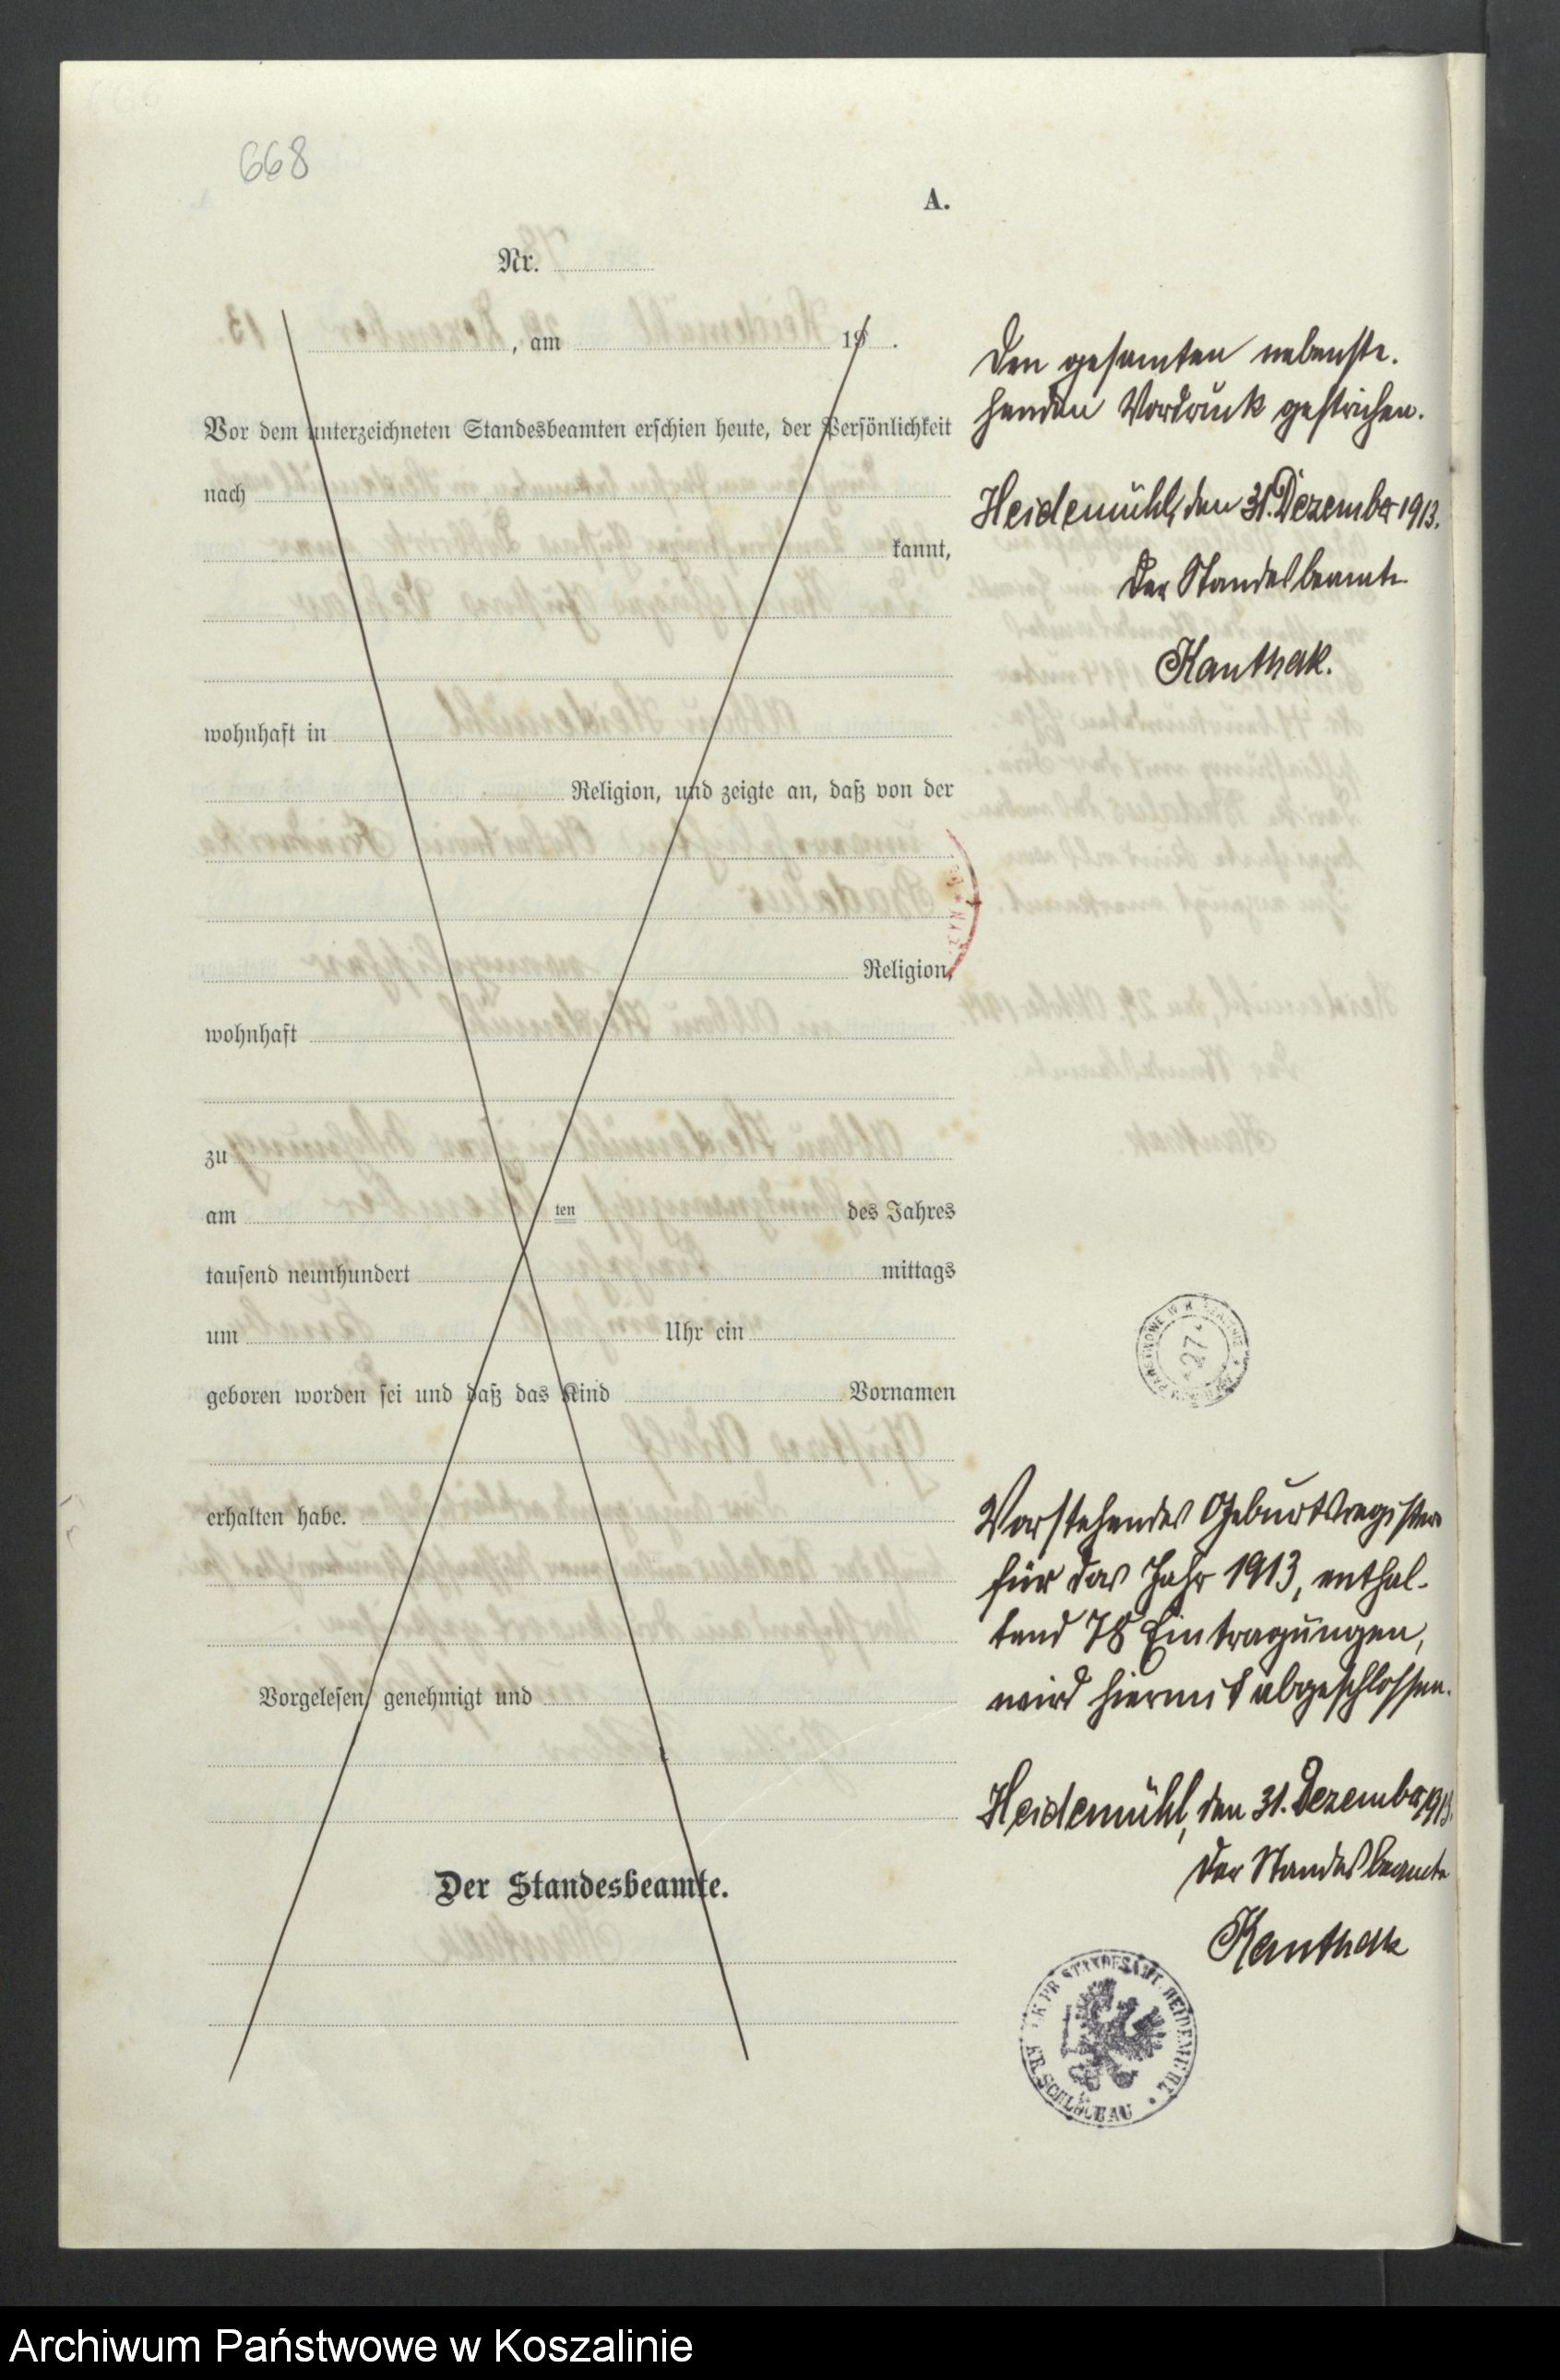 668
A.
Nr.
, am 19 .
Vor dem unterzeichneten Standesbeamten erschien heute, der Persönlichkeit
nach
kannt,
wohnhaft in
Religion, und zeigte an, daß von der
Religion,
wohnhaft
zu
am ten des Jahres
tausend neunhundert mittags
um Uhr ein
geboren worden sei und daß das Kind Vornamen
erhalten habe.
Vorgelesen, genehmigt und
Der Standesbeamte.
Den gesamten nebenste-
henden Vordruck gestrichen.
Heidemühl, den 31. Dezember 1913.
Der Standesbeamte
Kanthak.
27
Vorstehendes Geburtsregister
für das Jahr 1913, enthal-
tend 78 Eintragungen,
wird hiermit abgeschlossen.
Heidemühl, den 31. Dezember 1913.
Der Standesbeamte
Kanthak
K. PR. STANDESAMT HEIDEMÜHL
KR. SCHLOCHAU
Archiwum Państwowe w Koszalinie